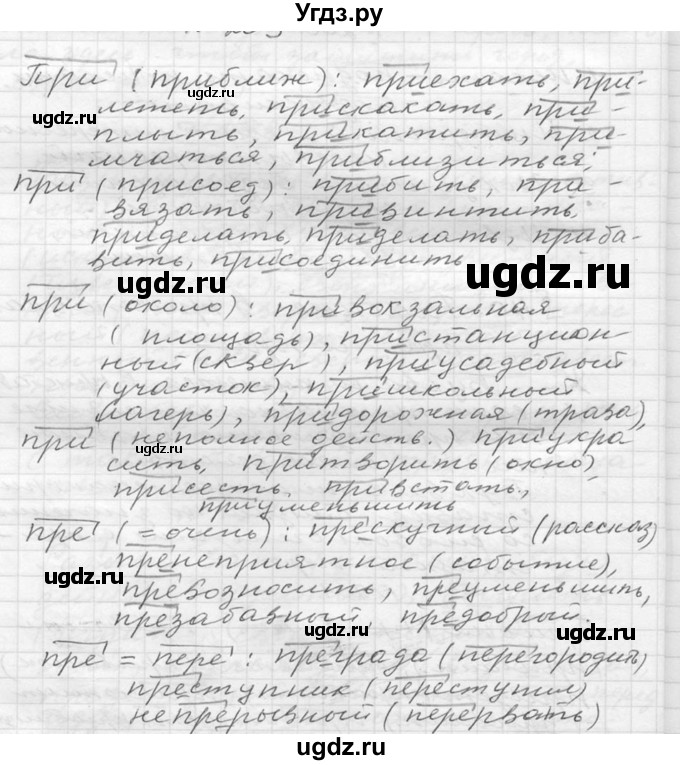 Угдз.ру
При (приближ): приехать, при-
лететь, прискакать, при-
плыть, прикатить, при-
мчаться, приблизиться;
при (присоед): прибить, при-
вязать, привинтить,
приделать, приделать, приба-
вить, присоединить
при (около): привокзальная
(площадь), пристанцион
ный (сквер), приусадебный
(участок), пришкольный
лагерь), придорожная (трава),
при (неполное действ.) приукра
сить, притворить (окно),
присесть, привстать,
приуменьшить
пре (= очень): прескучный (рассказ)
пренеприятное (событие),
превозносить, преуменьшить,
презабавный, предобрый.
пре = пере: преграда (перегородить)
преступник (преступил)
непрерывный (перервать)
ugdz.ru
ugdz.ru
ugdz.ru
ugdz.ru
ugdz.ru
ugdz.ru
ugdz.ru
ugdz.ru
ugdz.ru
ugdz.ru
ugdz.ru
ugdz.ru